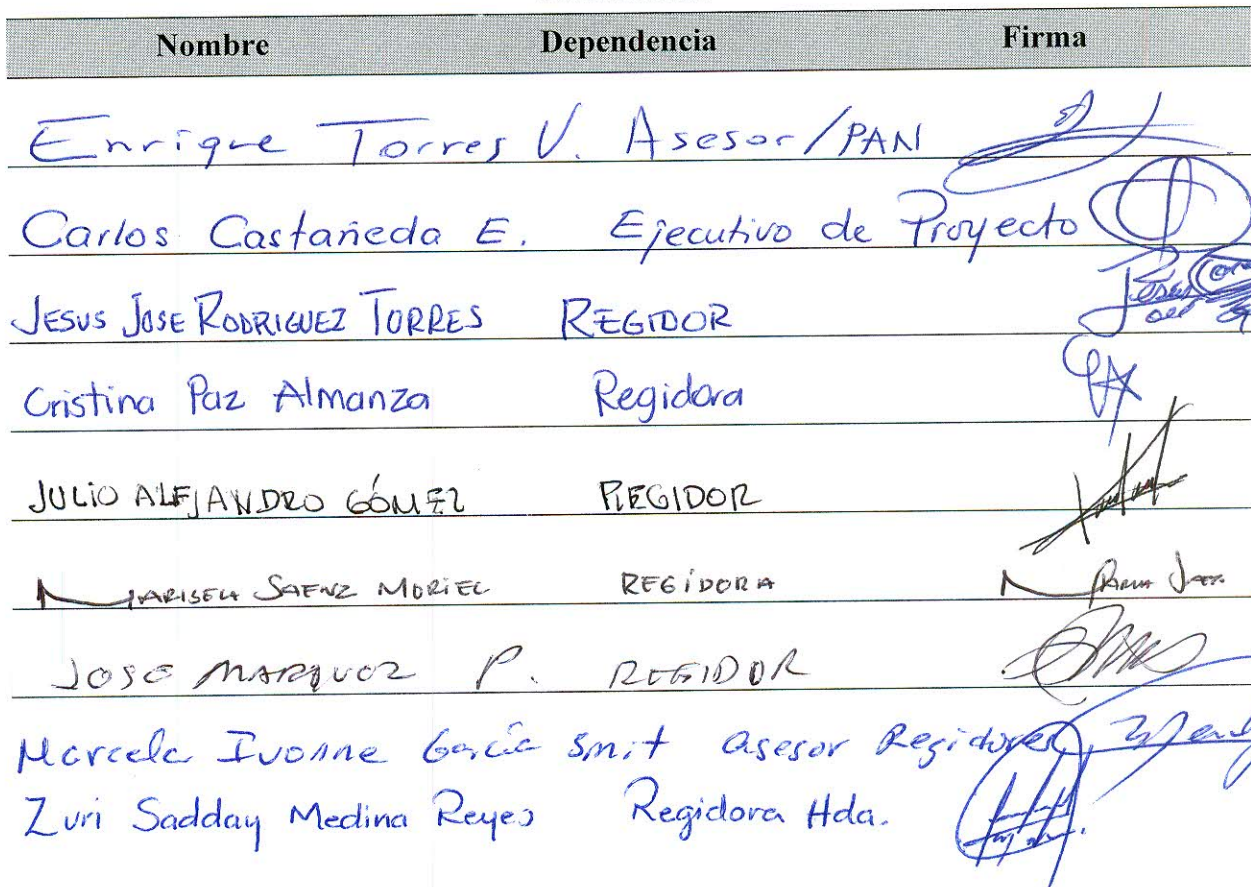 Nombre Dependencia Firma
Enrique Torres V. Asesor/PAN
Carlos Castañeda E. Ejecutivo de Proyecto
JESUS JOSE RODRIGUEZ TORRES REGIDOR
Cristina Paz Almanza Regidora
JULIO ALEJANDRO GÓMEZ REGIDOR
MARISELA SAENZ MORIEL REGIDORA
JOSE MARQUEZ P. REGIDOR
Marcela Ivonne García Smit asesor Regidores
Zuri Sadday Medina Reyes Regidora Hda.